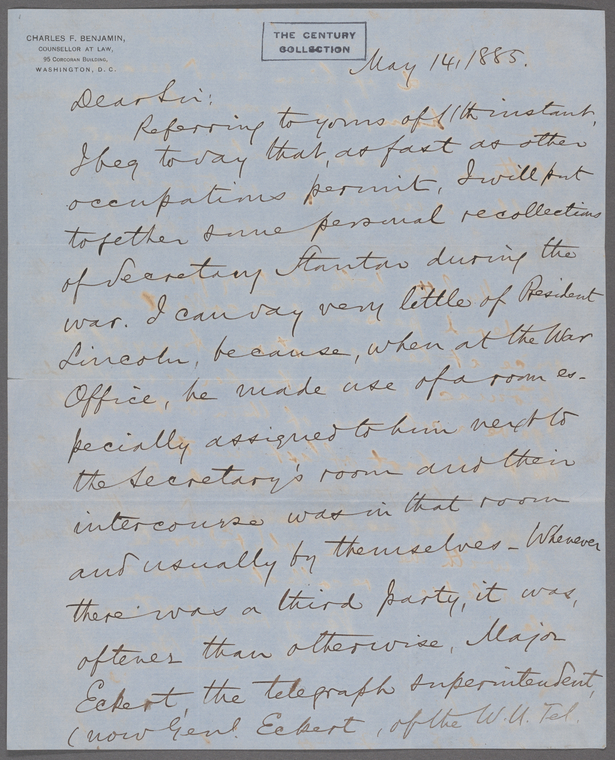 CHARLES F. BENJAMIN,
COUNSELLOR AT LAW,
95 CORCORAN BUILDING,
WASHINGTON, D. C.
THE CENTURY
COLLECTION
May 14, 1885.
Dear Sir:
Referring to yours of 11th instant,
I beg to say that, as fast as other
occupations permit, I will put
together some personal recollections
of Secretary Stanton during the
war. I can say very little of President
Lincoln, because, when at the War
Office, he made use of a room es-
pecially assigned to him next to
the Secretary's room and their
intercourse was in that room
and usually by themselves - Whenever
there was a third party, it was,
oftener than otherwise, Major
Eckert, the telegraph superintendent,
(now Genl. Eckert, of the W. U. Tel.